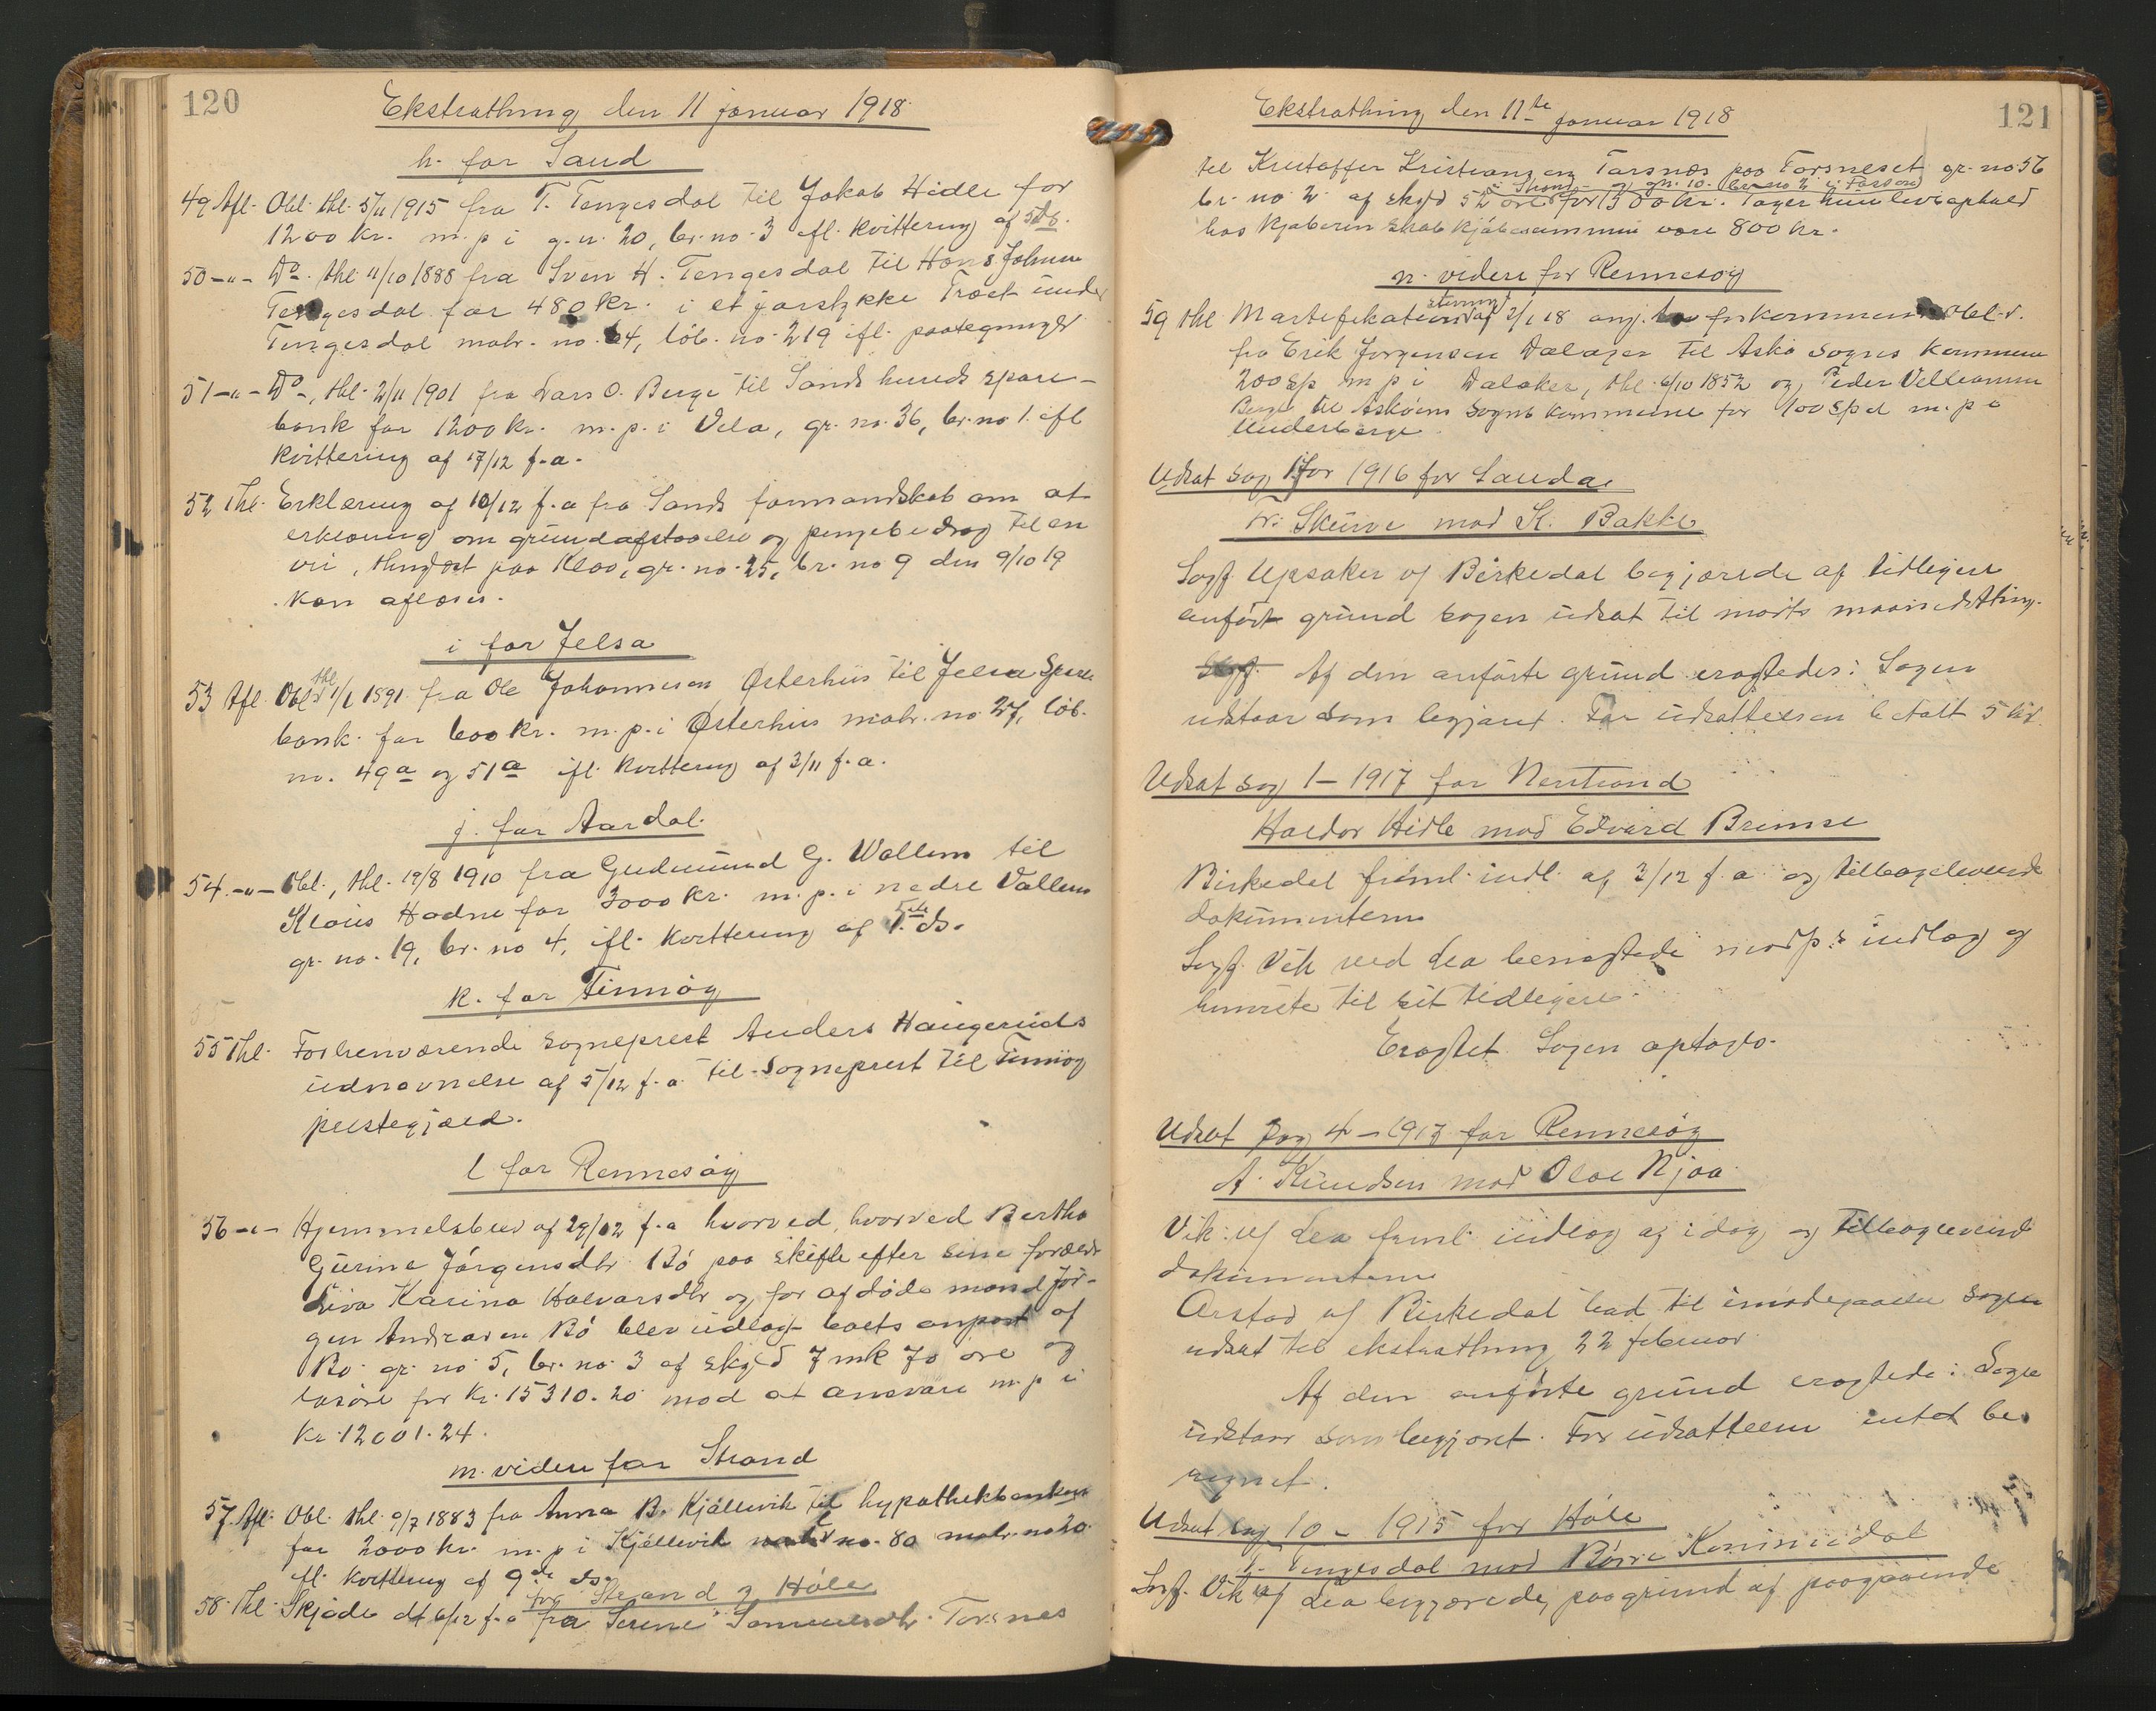 120
Ekstrathing den 11 januar 1918
h. for Sand
49 Afl. Obl. thl. 5/11 1915 fra T. Tengesdal til Jakob Hidle for
1200 kr. m. p i g. n. 20, br. no. 3 ifl. kvittering af 5 ds.
50 -"- Do. thl. 11/10 1888 fra Sven H. Tengesdal til Hans Johnsen
Tengesdal for 480 kr. i et jorstykke Træet under
Tengesdal matr. no. 64, löb. no. 219 ifl. paategninger
51 -"- Do, thl. 2/11 1901 fra Lars O. Berge til Sands hereds spare-
bank for 1200 kr. m. p. i Vela, gr. no. 36, br. no 1. ifl
kvittering af 17/12 f. a.
52 Thl. Erklæring af 10/12 f. a fra Sands formandskab om at
erklæring om grundafstaaelse og pengebidrag til en
vei, thinglæst paa Kloo, gr. no. 25, br. no 9 den 9/10 19
kan aflæses.
i for Jelsa
53 Afl. Obl. thl 1/6 1891 fra Ole Johannesen Østerhus til Jelsa Spare
bank for 600 kr. m. p. i Østerhus matr. no. 27, löb.
no. 49a og 51a ifl. kvittering af 3/11 f. a.
j. for Aardal.
54 -"- Obl., thl. 19/8 1910 fra Gudmund G. Vallem til
Klaus Hadne for 3000 kr. m. p. i nedre Vallem
gr. no. 19, br. no 4, ifl. kvittering af 5te ds.
k. for Finnöy
55 Thl. Forhenværende sogneprest Anders Haugeruds
udnævnelse af 5/12 f. a. til sogneprest til Finnöy
prestegjæld.
l for Rennesöy
56 -"- Hjemmelsbrev af 29/12 f. a hvorved, hvorved Bertha
Gurine Jörgensdtr Bö paa skifte efter sine forældre
Siva Karina Halvarsdtr og for afdöde mand Jör-
gen Andreasen Bö blev udlagt boets anpart af
Bö gr. no 5, br. no. 3 af skyld 7 mk 70 öre og
lösöre for kr. 15310.20 mod at ansvare m. p i
kr. 12001.24.
m. videre for Strand
57. Afl. Obl. thl. 9/7 1883 fra Anna B. Kjöllevik til hypothekbanken
for 2000 kr. m. p i Kjöllevik no. 80 matr. no 20.
ifl. kvittering af 9de ds.
for Strand og Höle
58. Thl. Skjöde af 6/12 f. a fra Serine Samuelsdtr. Torsnes
121
Ekstrathing den 11te januar 1918
til Kristoffer Kristiansen Tarsnæs paa Torsneset gr. no 56
i Strand og gr. 10. br. no 2 i Fossand
br. no 2 af skyld 52 öre for 1300 kr. Tager hun livsophold
hos kjøberen skal kjöbesummen være 800 kr.
n. videre for Rennesöy
59 thl. Mortifikationsstevning af 2/1 18 ang. forkommen Obl.
fra Erik Jorgensen Dalager til Askö sogns kommune
200 Sp m p i Dalaker, thl. 6/10 1852 og Peder Velleamm
Berge til Asköens sogns kommune for 100 Spd m. p i
Underberge.
Udsat sag 1 for 1916 for Sauda
Tr. Skeive mod K. Bakke
Sagf. Upsaker v/ Birkedal begjærede af tidligere
anfört grund sagen udsat til marts maanedsthing.
Af den anförte grund eragtedes: Sagen
udstaar som begjært. For udsættelsen betalt 5 kr.
Udsat sag 1 - 1917 for Nerstrand
Haldor Hidle mod Edvard Brimse
Birkedal freml. indl. af 3/12 f. a og tilbageleverede
dokumenterne
Sagf. Vik ved Lea benægtede modp.s indlæg og
henviste til sit tidligere.
Eragtet Sagen optages.
Udsat sag 4 - 1917 for Rennesöy
A. Knudsen mod Olai Njaa
Vik v/ Lea freml. indlæg af idag og tilbageleverede
dokumenterne
Arstad v/ Birkedal bad til imødegaaelse sagen
udsat til ekstrathing 22 februar.
Af den anförte grund eragtede: Sagen
udstaar som begjæret. For udsættelsen intet be
regnet.
Udsat sag 10 - 1915 for Höle
T. Tengesdal mod Börre Kommedal
Sagf. Vik v/ Lea begjærede, paa grund af paagaaende